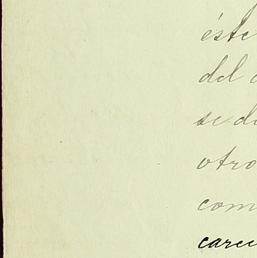 éste
del
se de
otro
com
care